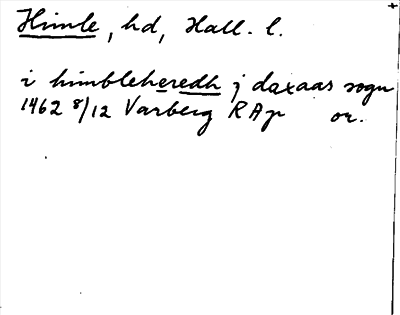 Himle, hd, Hall. l.
i himbleheredh j daxaas sogn
1462 8/12 Varberg RAp or.